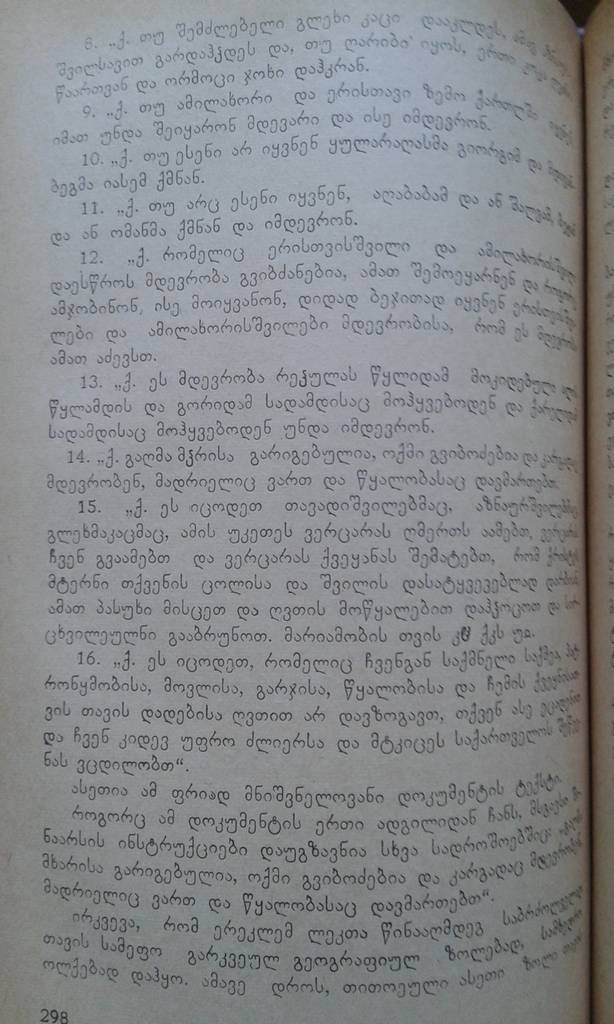 8. „ქ. თუ შემძლებელი გლეხი კაცი დააკლდეს,
შვილსავით გარდაჰჴდეს და, თუ ღარიბი იყოს, ერთი
წაართვან და ორმოცი ჯოხი დაჰკრან.
9. „ქ. თუ ამილახორი და ერისთავი ზემო ქართლში
იმათ უნდა შეიყარონ მდევარი და ისე იმდევრონ.
10. „ქ. თუ ესენი არ იყვნენ ყულარაღასმა გიორგიმ და
ბეგმა იასემ ქმნან.
11. „ქ. თუ არც ესენი იყვნენ, აღაბაბამ და ან
და ან ომანმა ქმნან და იმდევრონ.
12. „ქ. რომელიც ერისთვისშვილი და ამილახორისშვილი
დაესწროს მდევრობა გვიბძანებია, ამათ შემოეყარნენ და
ამჯობინონ, ისე მოიყვანონ, დიდად ბეჯითად იყვნენ
ლები და ამილახორისშვილები მდევრობისა, რომ ეს
ამათ აძევსთ.
13. „ქ. ეს მდევრობა რეჭულას წყლიდამ მოკიდებული
წყლამდის და გორიდამ სადამდისაც მოჰყვებოდენ და
სადამდისაც მოჰყვებოდენ უნდა იმდევრონ.
14. „ქ. გაღმა მჴრისა გარიგებულია, ოქმი გვიბოძებია და კარგადაც
მდევრობენ, მადრიელიც ვართ და წყალობასაც დავმართებთ.
15. „ქ. ეს იცოდეთ თავადიშვილებმაც, აზნაურშვილებმაც
გლეხმაკაცმაც, ამის უკეთეს ვერცარას ღმერთს აამებთ, ვერცარას
ჩვენ გვაამებთ და ვერცარას ქვეყანას შემატებთ, რომ
მტერნი თქვენის ცოლისა და შვილის დასატყვევებლად
ამათ პასუხი მისცეთ და ღვთის მოწყალებით დაჰჴოცოთ და
ცხვილეულნი გააბრუნოთ. მარიამობის თვის ქკს
16. „ქ. ეს იცოდეთ, რომელიც ჩვენგან საქმნელი საქმეა,
რონყმობისა, მოვლისა, გარჯისა, წყალობისა და ჩემის
ვის თავის დადებისა ღვთით არ დავზოგავთ, თქვენ ასე ეცადენით
და ჩვენ კიდევ უფრო ძლიერსა და მტკიცეს საქართველოს
ნას ვცდილობთ“.
ასეთია ამ ფრიად მნიშვნელოვანი დოკუმენტის ტექსტი.
როგორც ამ დოკუმენტის ერთი ადგილიდან ჩანს, მსგავსი
ნაარსის ინსტრუქციები დაუგზავნია სხვა სადროშოებშიც:
მხარისა გარიგებულია, ოქმი გვიბოძებია და კარგადაც მდევრობენ,
მადრიელიც ვართ და წყალობასაც დავმართებთ“.
ირკვევა, რომ ერეკლემ ლეკთა წინააღმდეგ საბრძოლველად
თავის სამეფო გარკვეულ გეოგრაფიულ ზოლებად, სამხედრო
ოლქებად დაჰყო. ამავე დროს, თითოეული ასეთი ზოლი
298